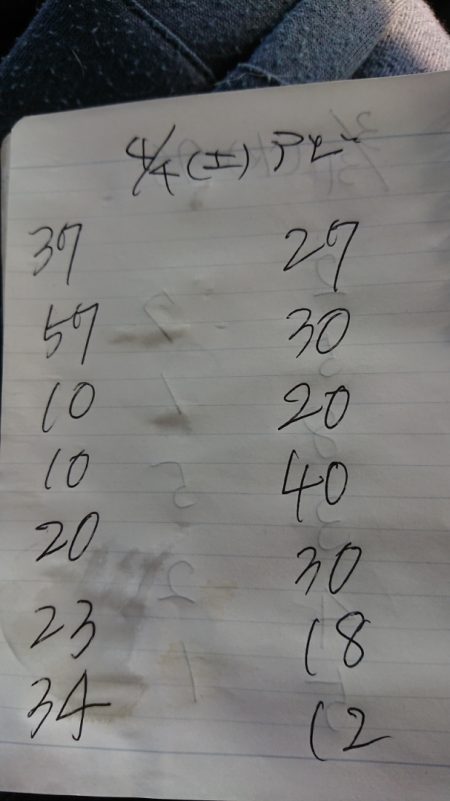 4/4(土)アピー
37 27
57 30
10 20
10 40
20 30
23 18
34 12